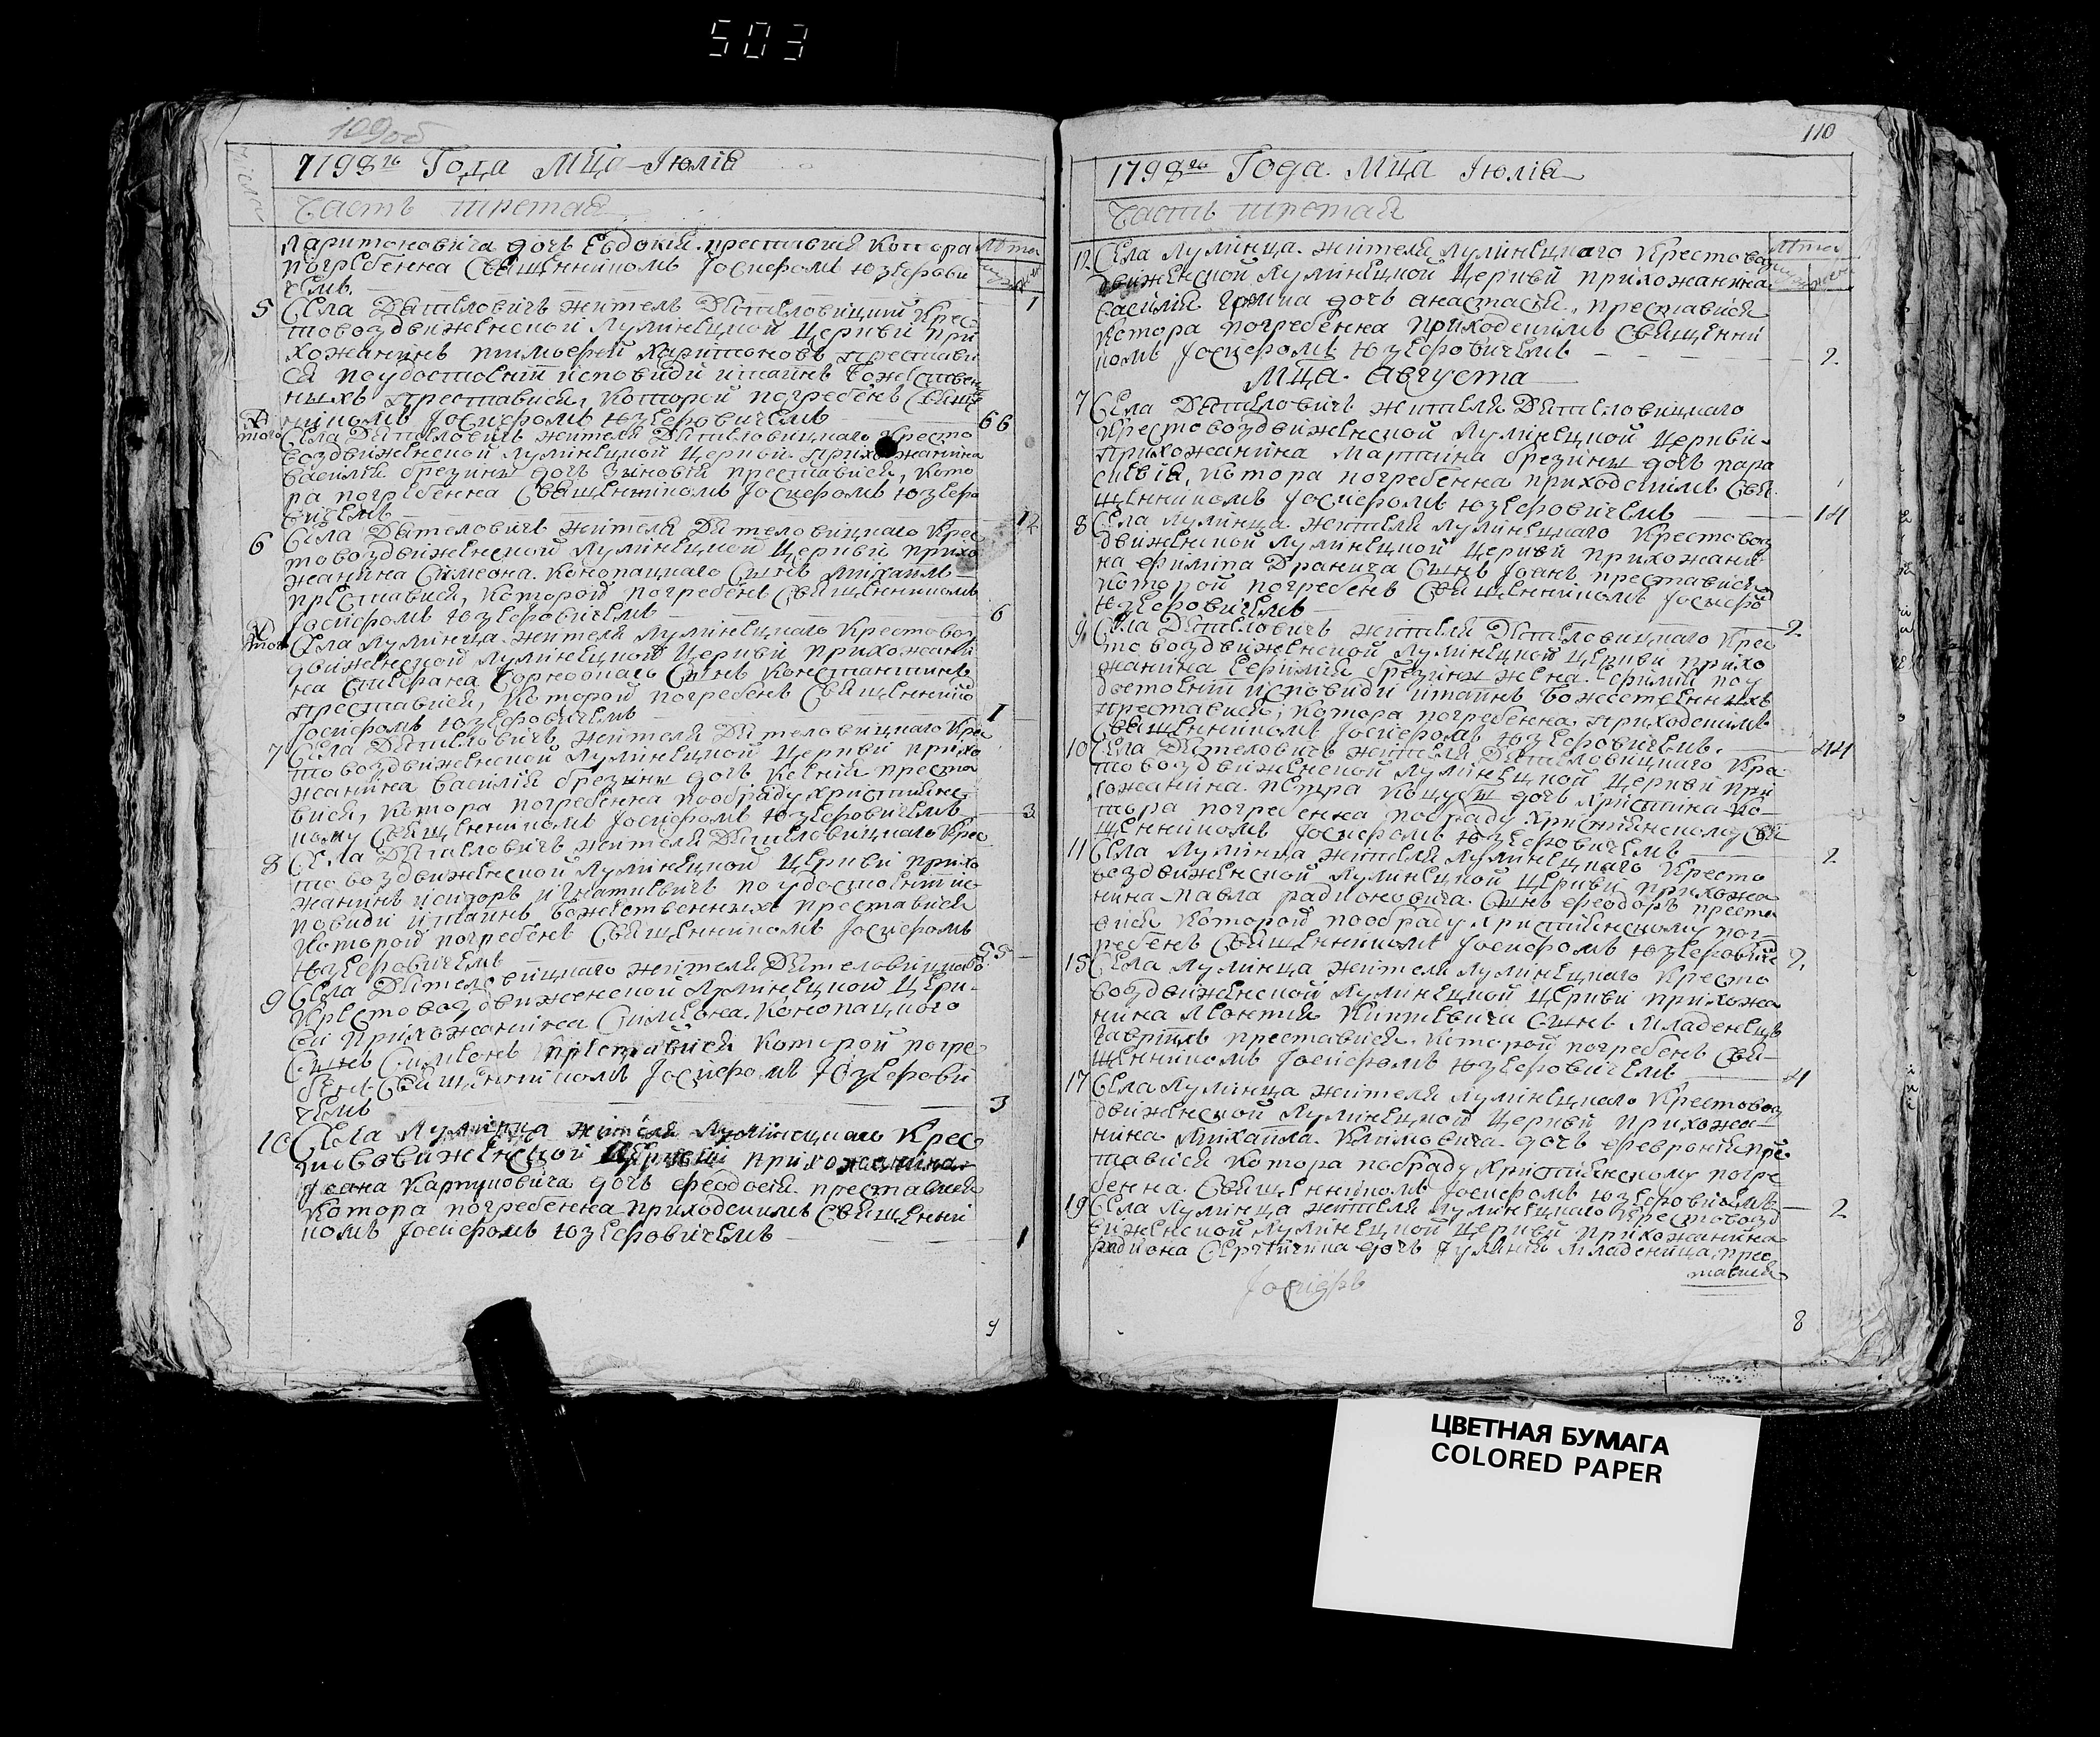 503
109об
1798го Года Мца Іюліа
Часть третая
Харитоновича дочь Евдокия преставися котора
погребенна Священникомъ Іосифомъ Юзефови
чемъ. 1
5 Села Дятеловичъ житель Дятеловицкий Крес
товоздвиженской Лулинецкой Церкви при
хожанинъ Тимофей Харитоновъ престави
ся по удостоении исповиди и таинъ Божествен
ныхъ преставися, которой погребенъ Свяще
никомъ Іосифомъ Юзефовичемъ 66
того Села Дятеловичъ жителя Дятеловицкаго Кресто
воздвиженской Лулинецкой Церкви прихожанина
Василия Брезины дочь Зыновия преставися, кото
ра погребенна Священникомъ Іосифомъ Юзефо
вичемъ 12
6 Села Дятеловичъ жителя Дятеловицкаго Крес
товоздвиженской Лулинецкой Церкви прихо
жанина Симеона Конопацкаго Сынъ Михаилъ
преставися, которой погребенъ Священникомъ
Іосифомъ Юзефовичемъ 6
того Села Лулинца жителя Лулинецкаго Крестовоз
движенской Лулинецкой Церкви прихожани
на Стефана Сынъ Константинъ
преставися, которой погребенъ Священнико
Іосифомъ Юзефовичемъ 1
7 Села Дятеловичъ жителя Дятеловицкаго Крес
товоздвиженской Лулинецкой Церкви прихо
жанина Василия Брезины дочь Ксения преста
вися, котора погребенна пообряду християнс
кому Священникомъ Іосифомъ Юзефовичемъ 3
8 Села Дятеловичъ жителя Дятеловицкаго Крес
товоздвиженской Лулинецкой Церкви прихо
жанинъ Исидоръ Игнатиевичъ по удостоении ис
повиди и таинъ Божественныхъ преставися
которой погребенъ Священникомъ Іосифомъ
Юзефовичемъ 55
9 Села Дятеловицкаго жителя Дятеловицкаго
Крестовоздвиженской Лулинецкой Церк
ви прихожанина Симеона Конопацкого
Сынъ Симеонъ преставися которой погре
бенъ Священникомъ Іосифомъ Юзефови
чемъ 3
10 Села Лулинца жителя Лулинецкаго Крес
товоздвиженской Церкви прихожанина
Іоана Карпуковича дочь Феодосия преставися
котора погребенна приходскимъ Священни
комъ Іосифомъ Юзефовичемъ 1
9
110
1798го Года Мца Іюліа
Часть третая
12 Села Лулинца жителя Лулинецкаго Крестовоз
движенской Лулинецкой Церкви прихожанина
Василия дочь Анастасия, преставися
котора погребенна приходскимъ Священни
комъ Іосифомъ Юзефовичемъ 2
Мца Августа
7 Села Дятеловичъ жителя Дятеловицкаго
Крестовоздвиженской Лулинецкой Церкви
прихожанина Мартина Брезины дочь Пара
скевия, котора погребенна приходскимъ Свя
щенникомъ Іосифомъ Юзефовичемъ 14
8 Села Лулинца жителя Лулинецкаго Крестовоз
движенской Лулинецкой Церкви прихожани
на Филипа Сынъ Іоанъ преставися
которой погребенъ Священникомъ Іосифо
Юзефовичемъ 2
9 Села Дятеловичъ жителя Дятеловицкаго Крес
товоздвиженской Лулинецкой Церкви прихо
жанина Ефимия Брезины жена по у
достоении исповиди и таинъ Божественныхъ
преставися, котора погребенна приходскимъ
Священникомъ Іосифомъ Юзефовичемъ. 44
10 Села Дятеловичъ жителя Дятеловицкаго Кре
стовоздвиженской Лулинецкой Церкви при
хожанина Петра Коцубы дочь Христина ко
тора погребенна пообряду християнскому Свя
щенникомъ Іосифомъ Юзефовичемъ 2
11 Села Лулинца жителя Лулинецкаго Кресто
воздвиженской Лулинецкой Церкви прихожа
нина Павла Радионовича Сынъ Феодоръ преста
вися которой пообряду християнскому пог
ребенъ Священникомъ Іосифомъ Юзефовиче 2
15 Села Лулинца жителя Лулинецкаго Кресто
воздвиженской Лулинецкой Церкви прихожа
нина Леонтия Сынъ Младенецъ
Гавриилъ преставися, которой погребенъ Свя
щенникомъ Іосифомъ Юзефовичемъ 4
17 Села Лулинца жителя Лулинецкаго Крестовоз
движенской Лулинецкой Церкви прихожа
нина Михаила Климовича дочь Феврония пре
ставися котора пообряду християнскому погре
бенна Священникомъ Іосифомъ Юзефовичемъ 2
19 Села Лулинца жителя Лулинецкаго Крестовозд
виженской Лулинецкой Церкви прихожанина
Радиона дочь Іулиния Младеница, прес
тавися
Іосифъ
8
ЦВЕТНАЯ БУМАГА
COLORED PAPER